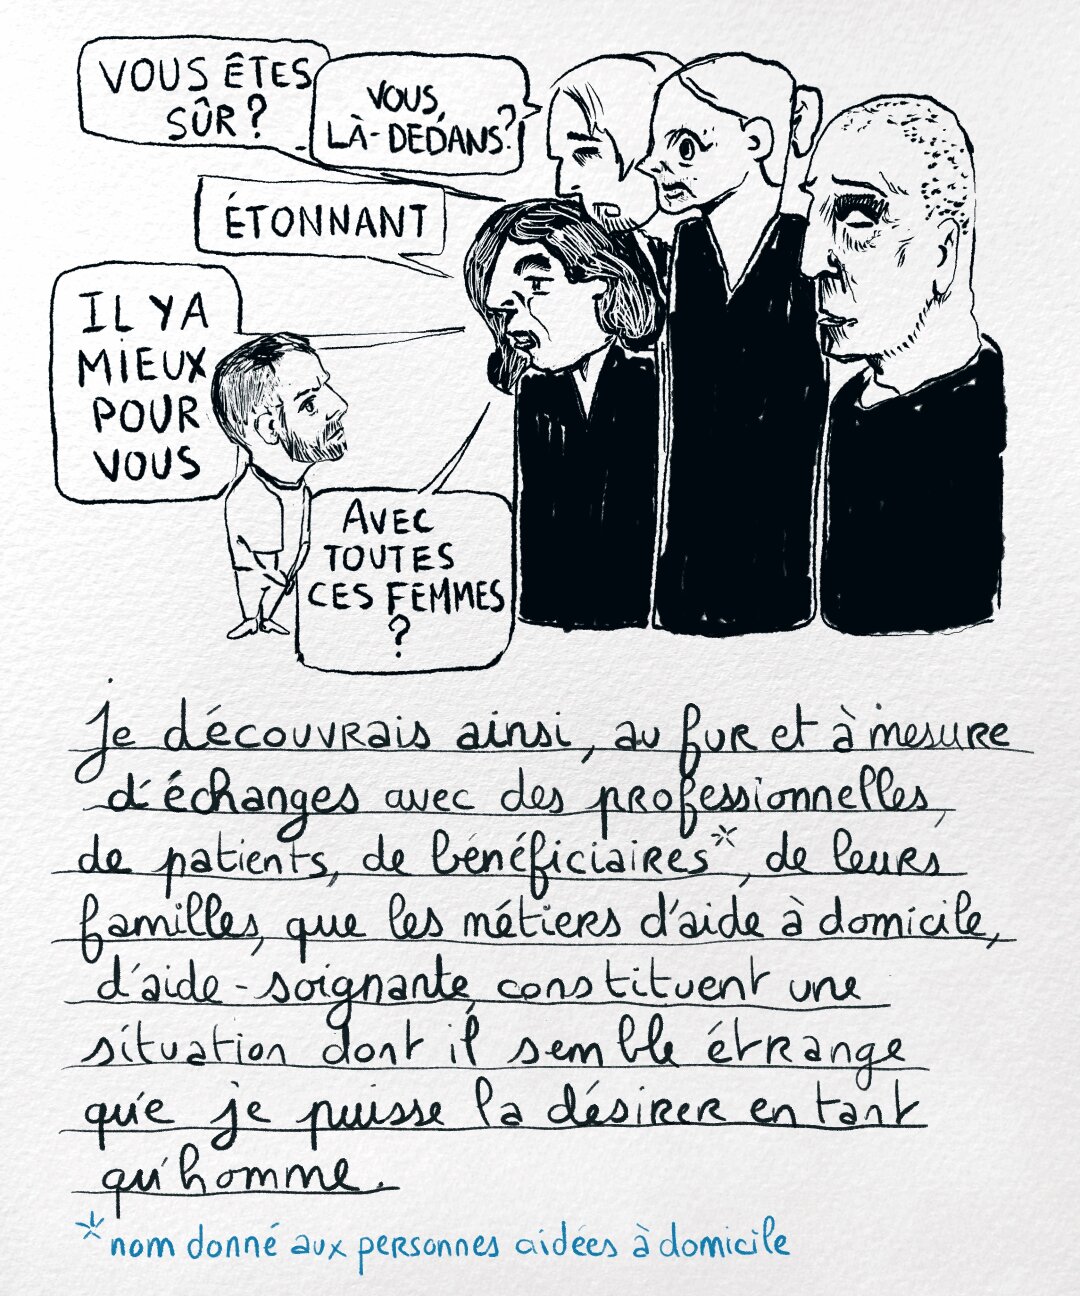 VOUS ÊTES
SÛR ?
VOUS,
LÀ-DEDANS ?
ÉTONNANT
IL Y A
MIEUX
POUR
VOUS
AVEC
TOUTES
CES FEMMES
?
Je découvrais ainsi, au fur et à mesure
d'échanges avec des professionnelles,
de patients, de bénéficiaires*, de leurs
familles, que les métiers d'aide à domicile,
d'aide-soignante, constituent une
situation dont il semble étrange
que je puisse la désirer en tant
qu'homme.
*nom donné aux personnes aidées à domicile